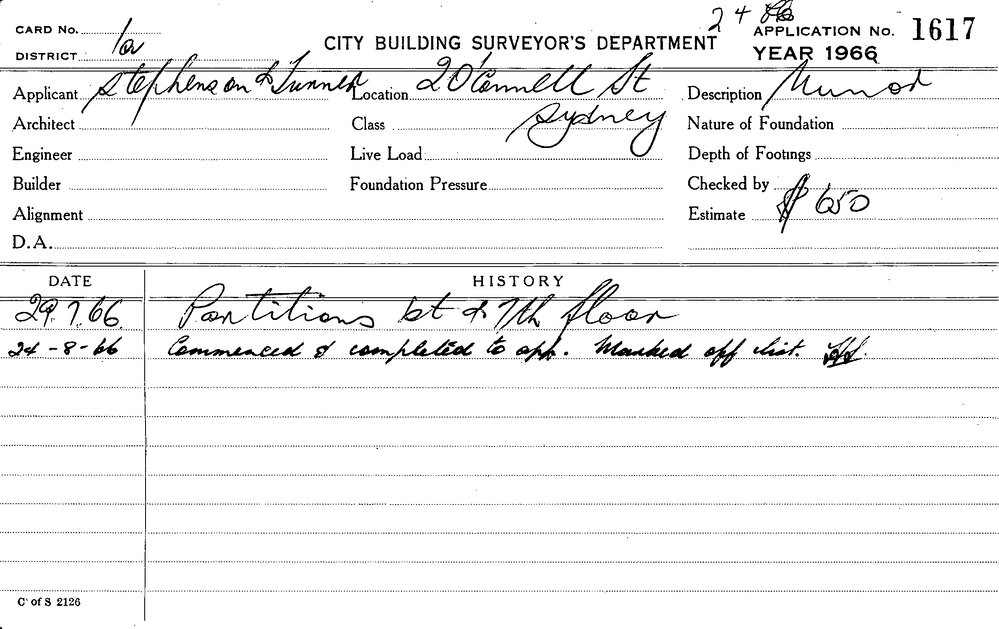 CARD No.
DISTRICT 1a
CITY BUILDING SURVEYOR'S DEPARTMENT
24
APPLICATION No. 1617
YEAR 1966
Applicant Stephenson & Turner
Location 2 O'Connell St
Sydney
Description Minor
Architect
Class
Nature of Foundation
Engineer
Live Load
Depth of Footings
Builder
Foundation Pressure
Checked by
Alignment
Estimate $ 650
D.A.
DATE HISTORY
29.7.66. Partitions 1st & 7th floor
24-8-66 Commenced & completed to app. Marked off list.
C of S 2126